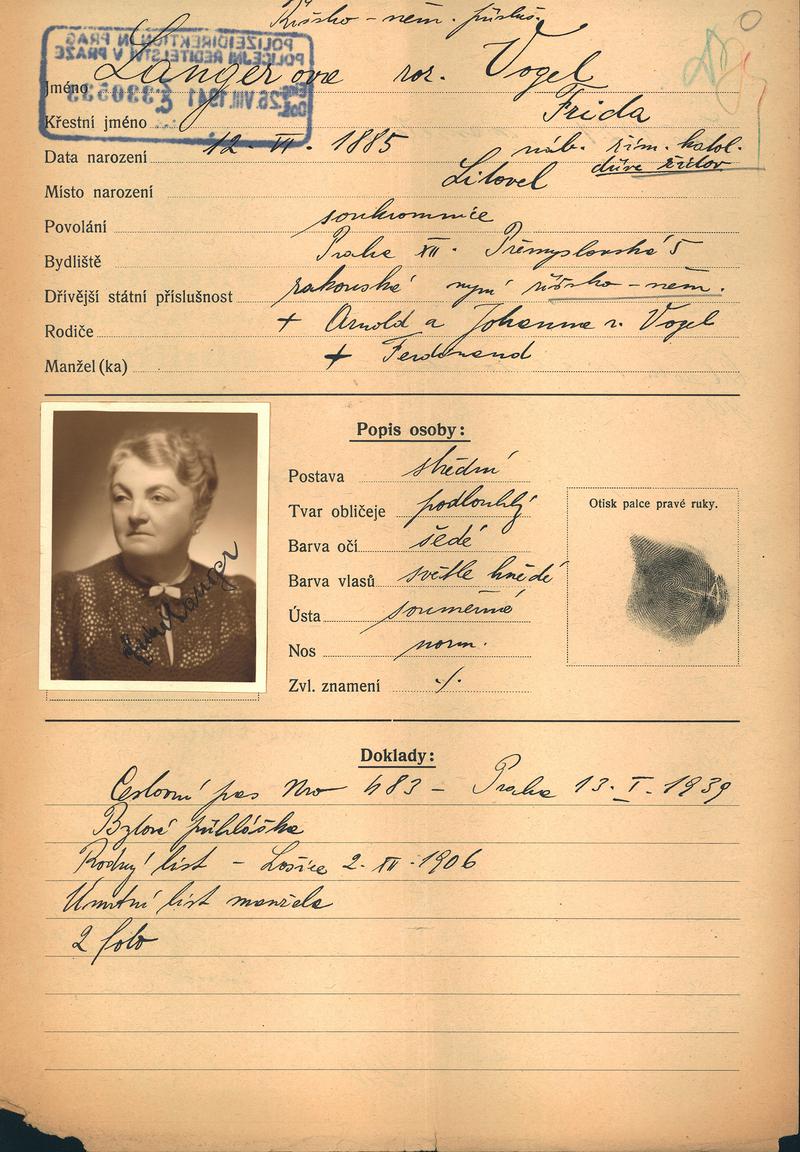 Říšsko-něm. přísluš.
POLIZEIDIREKTION IN PRAG
POLICEJNÍ ŘEDITELSTVÍ V PRAZE
26. VIII. 1941 č 330533
Jméno Langerová roz. Vogel
Křestní jméno Frida
Data narození 12. VI. 1885 náb. řím. katol.
dříve židov
Místo narození Litovel
Povolání soukromnice
Bydliště Praha XII. Přemyslovská 5
Dřívější státní příslušnost rakouská nyní říšsko-něm.
Rodiče + Arnold a Johanna r. Vogel
Manžel(ka) + Ferdinand
Popis osoby:
Postava střední
Tvar obličeje podlouhlý
Barva očí šedé
Barva vlasů světle hnědé
Ústa souměrné
Nos norm.
Zvl. znamení ./.
Otisk palce pravé ruky.
Langer
Doklady:
Cestovní pas Nro 483 - Praha 13. I. 1939
Bytová přihláška
Rodný list - Lošice 2. XII. 1906
Úmrtní list manžela
2 foto